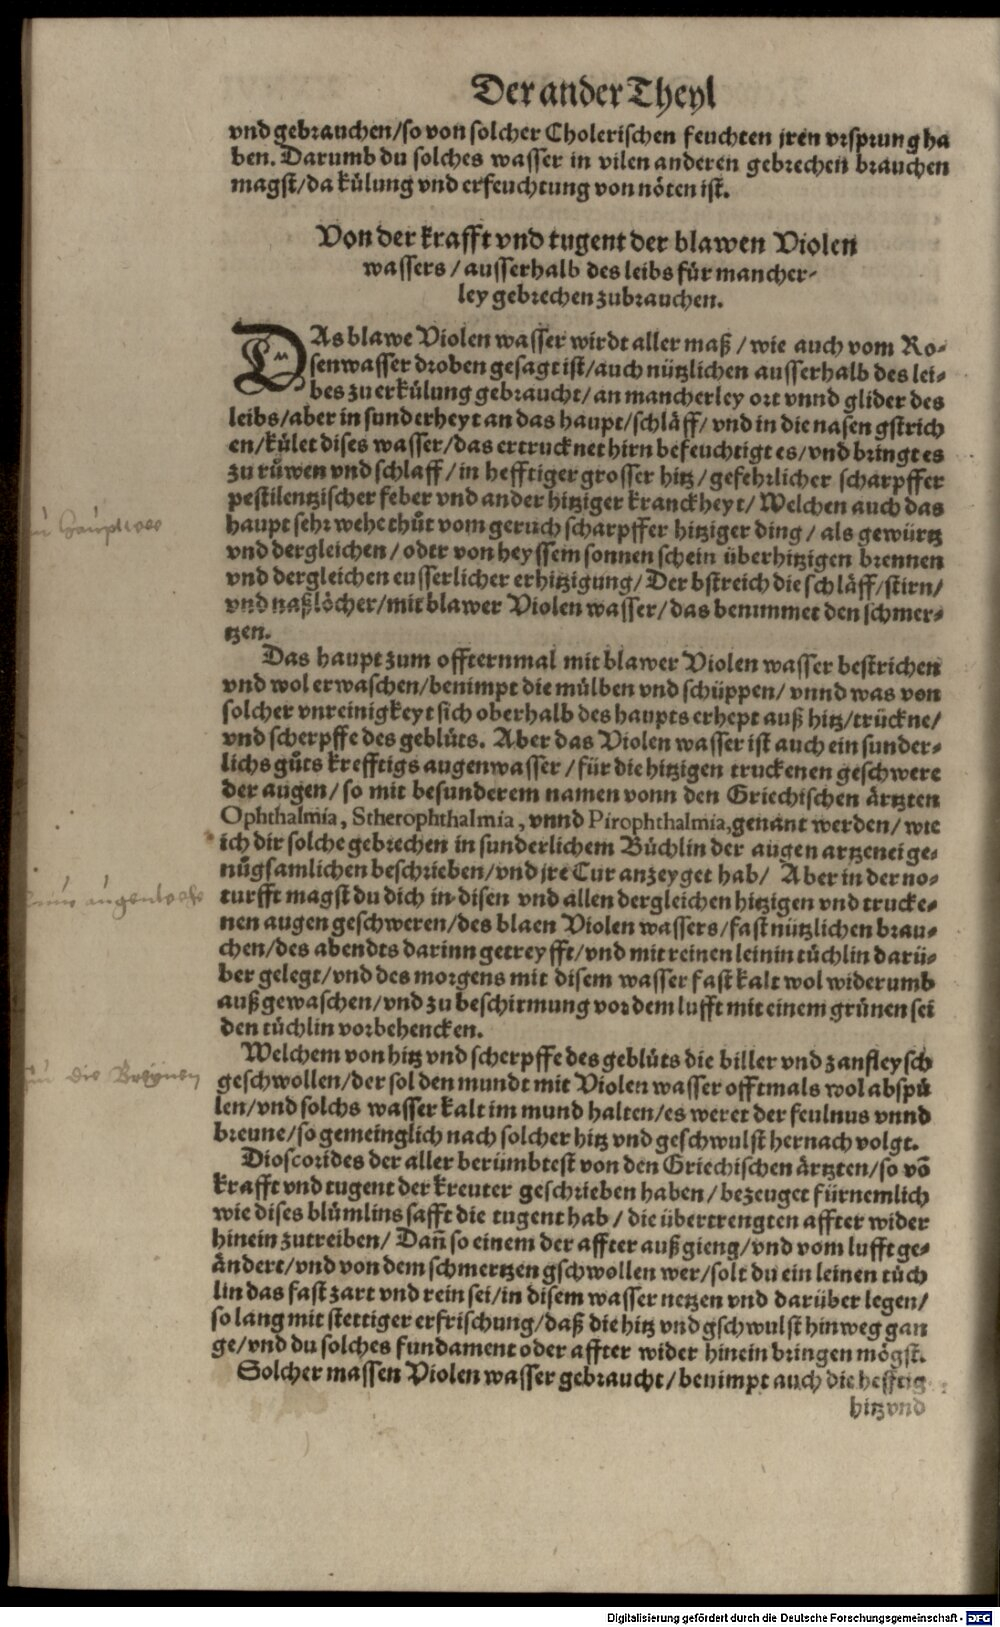 Der ander Theyl
vnd gebrauchen/so von solcher Cholerischen feuchten jren vrsprung ha
ben. Darumb du solches wasser in vilen anderen gebrechen brauchen
magst/da külung vnd erfeuchtung von nöten ist.
Von der krafft vnd tugent der blawen Violen
wassers/ausserhalb des leibs für mancher-
ley gebrechen zubrauchen.
DAs blawe Violen wasser wirdt aller maß/wie auch vom Ro-
senwasser droben gesagt ist/auch nützlichen ausserhalb des lei-
bes zu erkülung gebraucht/an mancherley ort vnnd glider des
leibs/aber in sunderheyt an das haupt/schläff/vnd in die nasen gstrich
en/kület dises wasser/das ertrucknet hirn befeuchtigt es/vnd bringt es
zu růwen vnd schlaff/in hefftiger grosser hitz/gefehrlicher scharpffer
pestilentzischer feber vnd ander hitziger kranckheyt/Welchen auch das
haupt sehr wehe thůt vom geruch scharpffer hitziger ding/als gewürtz
vnd dergleichen/oder von heyssem sonnenschein überhitzigen brennen
vnd dergleichen eusserlicher erhitzigung/Der bstreich die schläff/stirn/
vnd naßlöcher/mit blawer Violen wasser/das benimmet den schmer-
tzen.
Das haupt zum offternmal mit blawer Violen wasser bestrichen
vnd wol erwaschen/benimpt die mülben vnd schüppen/vnnd was von
solcher vnreinigkeyt sich oberhalb des haupts erhept auß hitz/trückne/
vnd scherpffe des geblüts. Aber das Violen wasser ist auch ein sunder-
lichs gůts krefftigs augenwasser/für die hitzigen truckenen geschwere
der augen/so mit besunderem namen vonn den Griechischen ärtzten
Ophthalmia, Stherophthalmia, vnnd Pirophthalmia, genant werden/wie
ich dir solche gebrechen in sunderlichem Büchlin der augen artzenei ge-
nůgsamlichen beschrieben/vnd jre Cur anzeyget hab/ Aber in der no-
turfft magst du dich in disen vnd allen dergleichen hitzigen vnd trucke-
nen augen geschweren/des blaen Violen wassers/fast nützlichen brau-
chen/des abendts darinn getreyfft/vnd mit reinen leinin tüchlin darü-
ber gelegt/vnd des morgens mit disem wasser fast kalt wol widerumb
außgewaschen/vnd zu beschirmung vor dem lufft mit einem grünen sei
den tüchlin vorbehencken.
Welchem von hitz vnd scherpffe des geblüts die biller vnd zanfleysch
geschwollen/der sol den mundt mit Violen wasser offtmals wol abspů
len/vnd solchs wasser kalt im mund halten/es weret der feulnus vnnd
breune/so gemeinglich nach solcher hitz vnd geschwulst hernach volgt.
Dioscorides der aller berümbtest von den Griechischen ärtzten/so võ
krafft vnd tugent der kreuter geschrieben haben/bezeuget fürnemlich
wie dises blümlins safft die tugent hab/die übertrengten affter wider
hinein zutreiben/Dañ so einem der affter auß gieng/vnd vom lufft ge-
ändert/vnd von dem schmertzen gschwollen wer/solt du ein leinen tüch
lin das fast zart vnd rein sei/in disem wasser netzen vnd darüber legen/
so lang mit stettiger erfrischung/daß die hitz vnd gschwulst hinweg gan
ge/vnd du solches fundament oder affter wider hinein bringen mögst.
Solcher massen Violen wasser gebraucht/benimpt auch die hefftig
hitz vnd
die Breynen
Digitalisierung gefördert durch die Deutsche Forschungsgemeinschaft - DFG